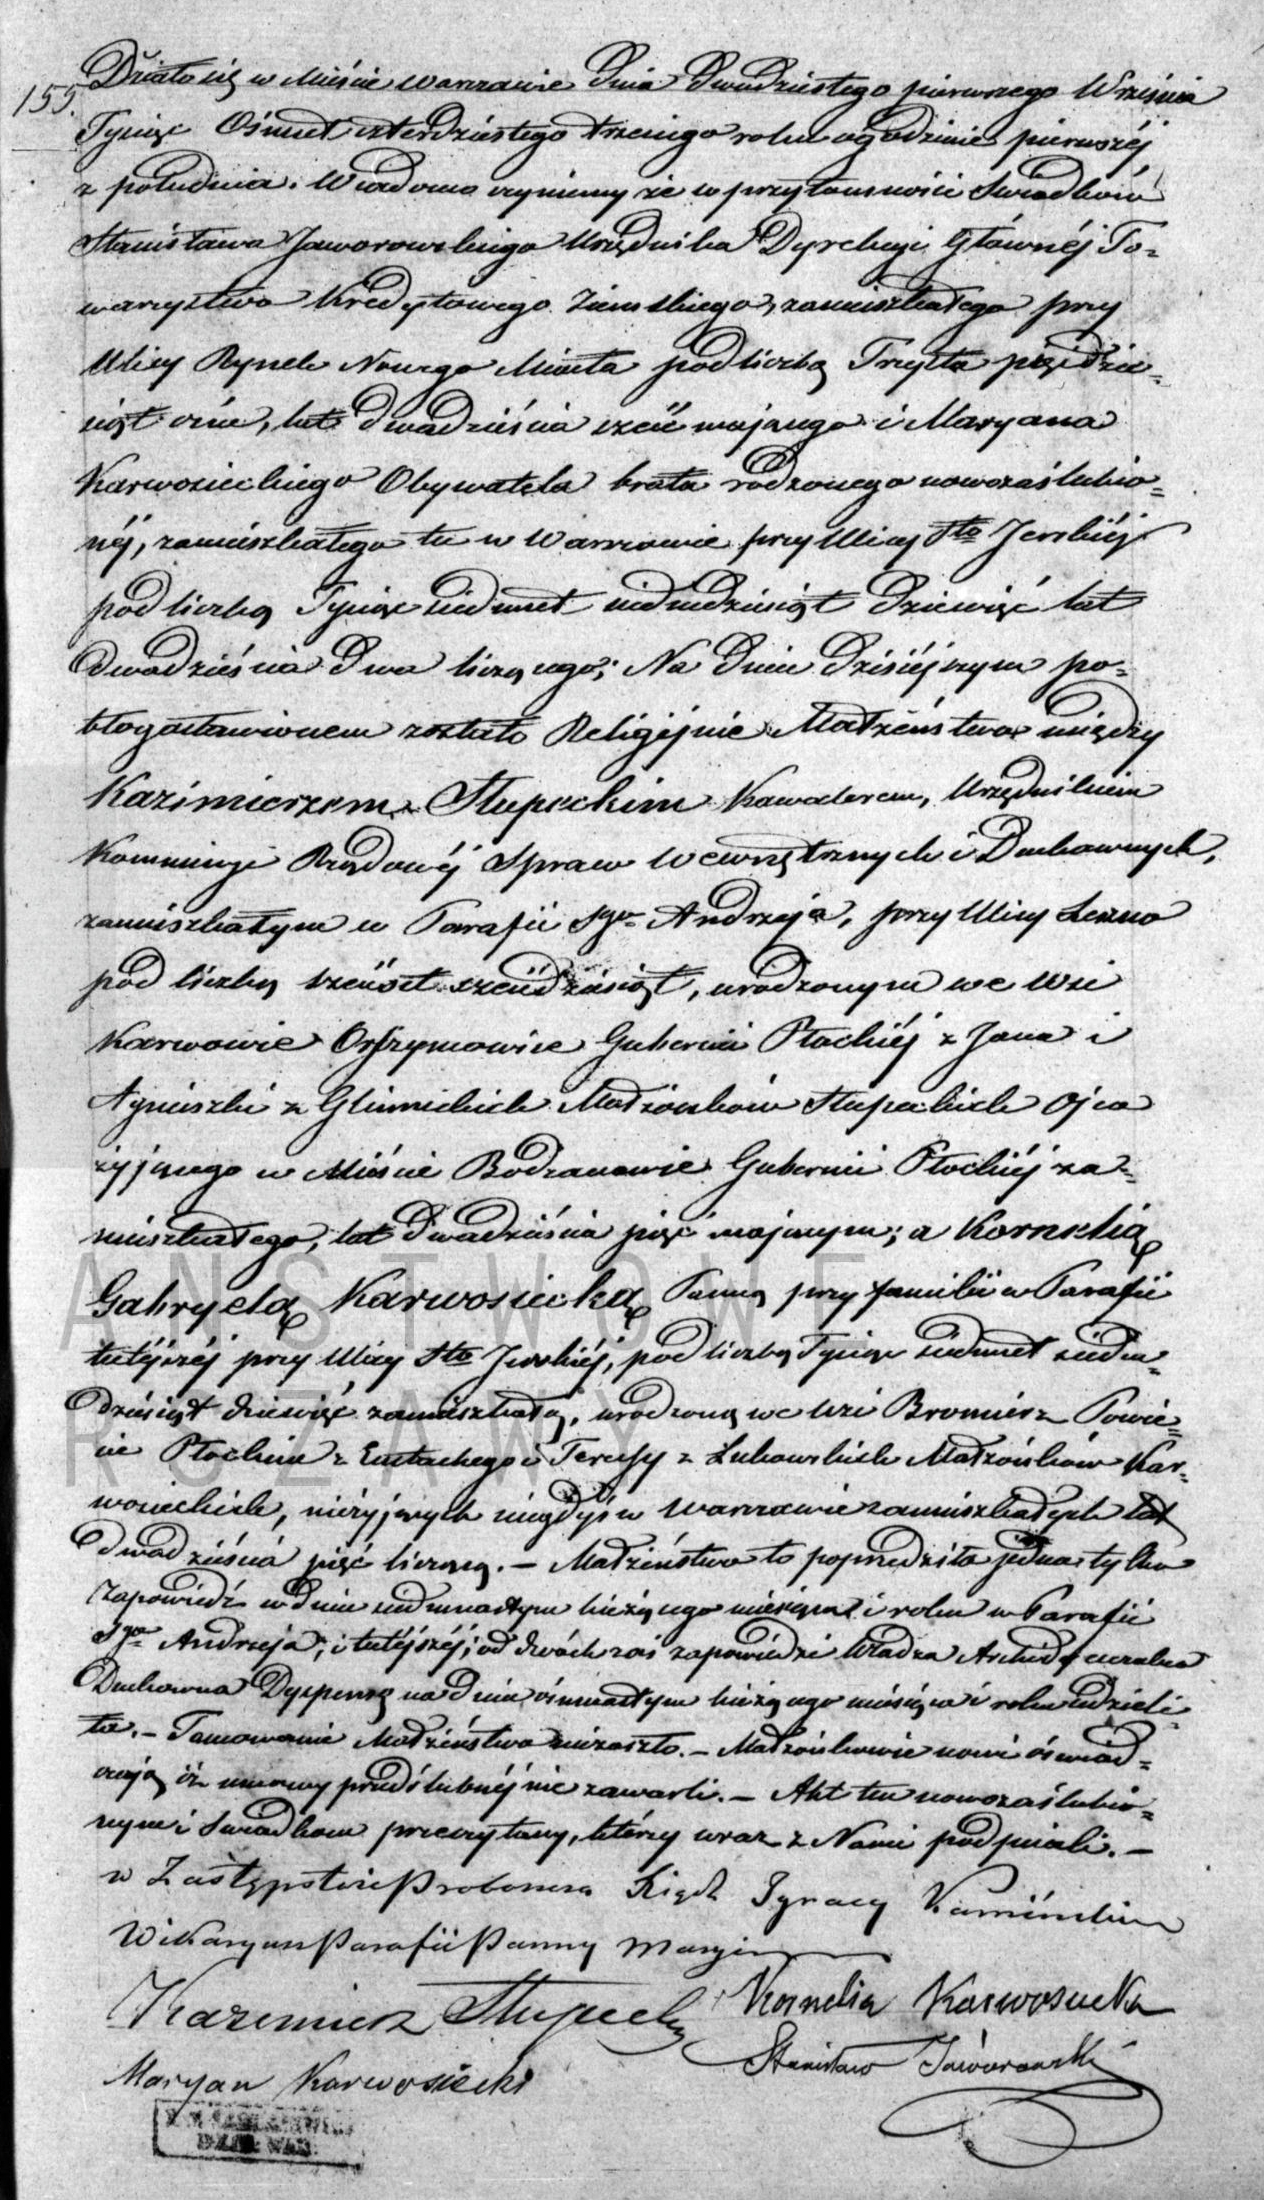 155.
Działo się w Mieście Warszawie dnia dwudziestego pierwszego Września
Tysiąc Ośmset czterdziestego trzeciego roku o godzinie pierwszéj
z południa. Wiadomo czyniemy że w przytomności Swiadków
Stanisława Jaworowskiego Urzędnika Dyrekcyi Głównéj To=
warzystwa Kredytowego Ziemskiego, zamieszkałego przy
Ulicy Rynek Nowego Miasta pod liczbą Trzysta pięćdzie=
siąt ośm, lat dwadzieścia sześć mającego i Maryana
Karwosieckiego Obywatela brata rodzonego nowozaślubio=
néj, zamieszkałego tu w Warszawie przy Ulicy Sto Jerskiéj
pod liczbą Tysiąc siedmset siedmdziesiąt dziewięć lat
dwadzieścia dwa liczącego; Na dniu dzisiéjszym po=
błogosławionem zostało Religijnie Małżeństwo między
Kazimierzem Słupeckim Kawalerem, Urzędnikiem
Kommissyi Rządowéj Spraw Wewnętrznych i Duchownych,
zamieszkałym w Parafii Sgo Andrzeja, przy Ulicy Leszno
pod liczbą sześćset sześćdziesiąt, urodzonym we Wsi
Karwowie Orszymowice Gubernii Płockiéj z Jana i
Agnieszki z Glinickich Małżonków Słupeckich Ojca
żyjącego w Mieście Bodzanowie Gubernii Płockiéj za=
mieszkałego, lat dwadzieścia pięć mającym; a Kornelią
Gabryelą Karwosiecką Panną przy familii w Parafii
tutéjszéj przy Ulicy Sto Jerskiéj, pod liczbą Tysiąc siedmset siedm=
dziesiąt dziewięć zamieszkałą, urodzoną we Wsi Bromierz Powie=
cie Płockim z Eustachego i Teressy z Łukowskich Małżonków Kar=
wosieckich, nieżyjących niegdyś w Warszawie zamieszkałych lat
dwadzieścia pięć liczącą. — Małżeństwo to poprzedziła jedna tylko
Zapowiedź w dniu siedmnastym bieżącego miesiąca i roku w Parafii
Sgo Andrzeja, i tutéjszéj; od dwóch zaś zapowiedzi Władza Archidyecezalna
Duchowna Dyspensę na dniu ośmnastym bieżącego miesiąca i roku udzieli=
ła. — Tamowanie Małżeństwa niezaszło. — Małżonkowie nowi oświad=
czają iż umowy przedślubnéj nie zawarli. — Akt ten nowozaślubio=
nym i Swiadkom przeczytany, którzy wraz z Nami podpisali. —
w Zastępstwie Proboszcza Xiądz Ignacy Kamiński
Wikaryusz Parafii Panny Maryi
Kazimierz Słupecki Kornelia Karwosiecka
Stanisław Jaworowski
Maryan Karwosiecki